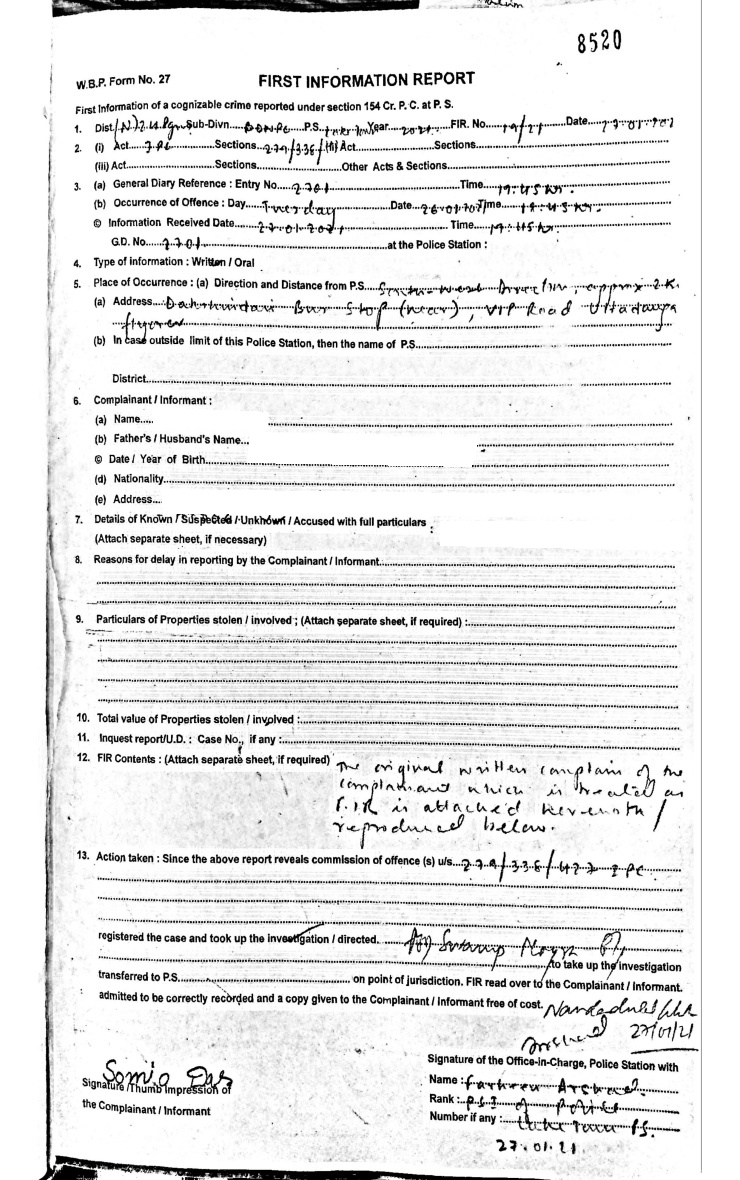 8520
W.B.P. Form No. 27
FIRST INFORMATION REPORT
First Information of a cognizable crime reported under section 154 Cr. P. C. at P. S.
1. Dist. Sub-Divn. P.S. Year 2021 FIR. No. 19/21 Date
2. (i) Act IPC Sections 279/336/ (ii) Act Sections
(iii) Act Sections Other Acts & Sections
3. (a) General Diary Reference : Entry No. 2701 Time 19:45 hr.
(b) Occurrence of Offence : Day Tuesday Date 26.01.2021 Time
© Information Received Date 27.01.2021 Time 19:45 hr.
G.D. No. 2701 at the Police Station :
4. Type of information : Written / Oral
5. Place of Occurrence : (a) Direction and Distance from P.S. approx 2 K.
(a) Address Bus Stop (near), VIP Road Ultadanga
flyover
(b) In case outside limit of this Police Station, then the name of P.S.
District
6. Complainant / Informant :
(a) Name
(b) Father's / Husband's Name
© Date / Year of Birth
(d) Nationality
(e) Address
7. Details of Known / Suspected / Unkhown / Accused with full particulars :
(Attach separate sheet, if necessary)
8. Reasons for delay in reporting by the Complainant / Informant
9. Particulars of Properties stolen / involved ; (Attach separate sheet, if required) :
10. Total value of Properties stolen / involved :
11. Inquest report/U.D. : Case No., if any :
12. FIR Contents : (Attach separate sheet, if required) The original written complain of the
complainant which is treated as
FIR is attached herewith /
reproduced below.
13. Action taken : Since the above report reveals commission of offence (s) u/s 279/336/427 IPC
registered the case and took up the investigation / directed.
to take up the investigation
transferred to P.S. on point of jurisdiction. FIR read over to the Complainant / Informant.
admitted to be correctly recorded and a copy given to the Complainant / Informant free of cost.
27/01/21
Signature of the Office-in-Charge, Police Station with
Signature /Thumb Impression of
the Complainant / Informant
Name :
Rank : of Police
Number if any : Lake Town PS.
27.01.21